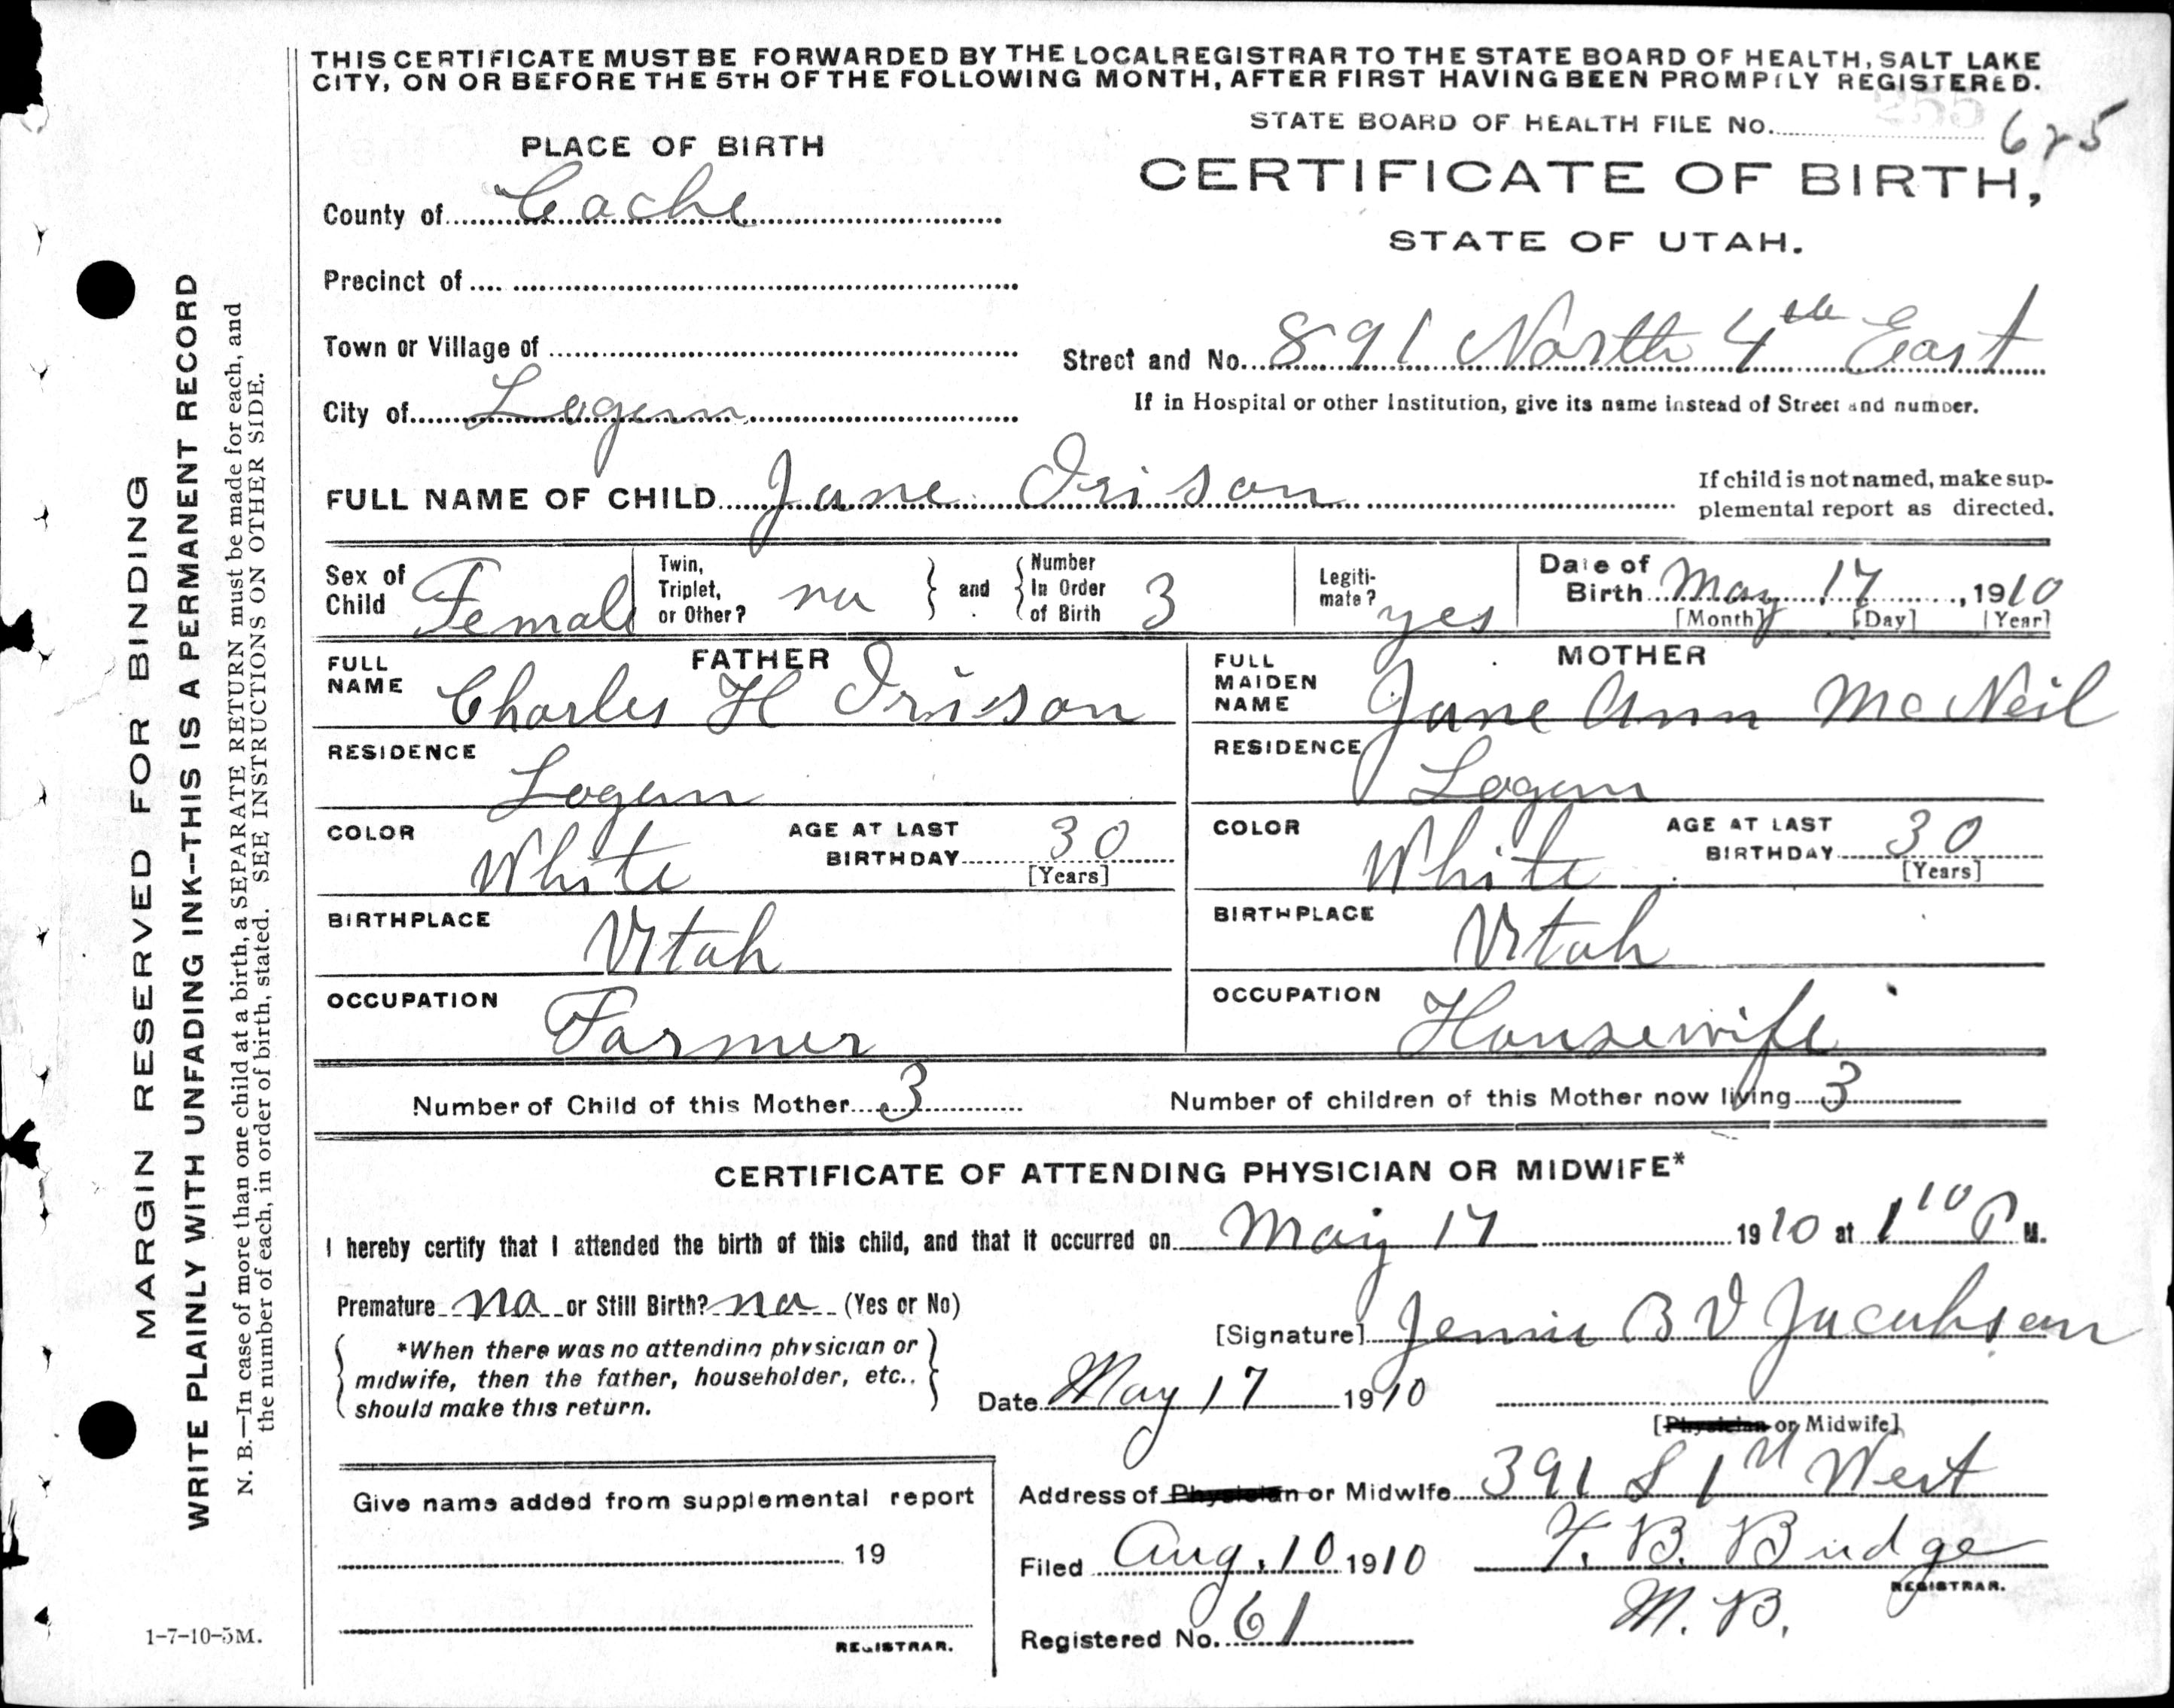 THIS CERTIFICATE MUST BE FORWARDED BY THE LOCAL REGISTRAR TO THE STATE BOARD OF HEALTH, SALT LAKE
CITY, ON OR BEFORE THE 5TH OF THE FOLLOWING MONTH, AFTER FIRST HAVING BEEN PROMPTLY REGISTERED.
STATE BOARD OF HEALTH FILE No. 255 625
PLACE OF BIRTH
CERTIFICATE OF BIRTH,
STATE OF UTAH.
County of Cache
Precinct of
Town or Village of
Street and No. 891 North 4th East
City of Logan
If in Hospital or other Institution, give its name instead of Street and number.
FULL NAME OF CHILD Jane Orison
If child is not named, make sup-
plemental report as directed.
Sex of Child Female
Twin, Triplet, or Other? no
and Number In Order of Birth 3
Legiti-mate? yes
Date of Birth May 17, 1910
[Month] [Day] [Year]
FATHER
FULL NAME Charles H Orison
MOTHER
FULL MAIDEN NAME Jane Ann McNeil
RESIDENCE Logan
RESIDENCE Logan
COLOR White AGE AT LAST BIRTHDAY 30 [Years]
COLOR White AGE AT LAST BIRTHDAY 30 [Years]
BIRTHPLACE Utah
BIRTHPLACE Utah
OCCUPATION Farmer
OCCUPATION Housewife
Number of Child of this Mother 3
Number of children of this Mother now living 3
CERTIFICATE OF ATTENDING PHYSICIAN OR MIDWIFE*
I hereby certify that I attended the birth of this child, and that it occurred on May 17 1910 at 1 10 P M.
Premature no or Still Birth? no (Yes or No)
*When there was no attending physician or
midwife, then the father, householder, etc.,
should make this return.
[Signature] Jennie B V Jacobsen
Date May 17 1910
[Physician or Midwife]
Address of Physician or Midwife 391 S 1st West
Give name added from supplemental report
19
REGISTRAR.
Filed Aug. 10 1910 F. B. Budge
REGISTRAR.
M. B.
Registered No. 61
MARGIN RESERVED FOR BINDING
WRITE PLAINLY WITH UNFADING INK--THIS IS A PERMANENT RECORD
N. B.—In case of more than one child at a birth, a SEPARATE RETURN must be made for each, and
the number of each, in order of birth, stated. SEE INSTRUCTIONS ON OTHER SIDE.
1-7-10-5M.